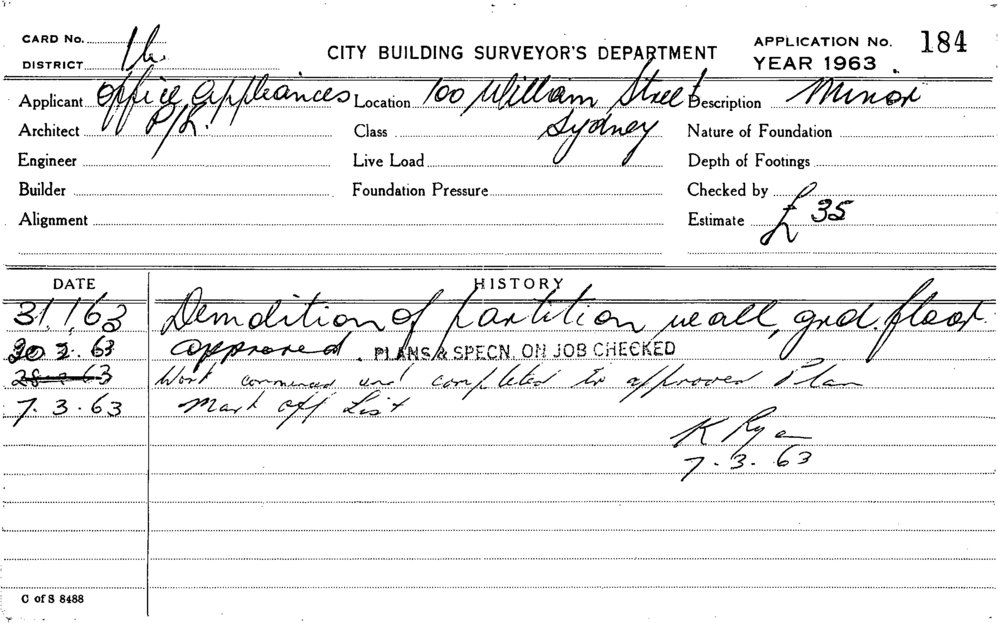 CARD No.
DISTRICT
CITY BUILDING SURVEYOR'S DEPARTMENT
APPLICATION No. 184
YEAR 1963
Applicant Office Appliances P/L. Location 100 William Street Sydney Description Minor
Architect Class Nature of Foundation
Engineer Live Load Depth of Footings
Builder Foundation Pressure Checked by
Alignment Estimate £35
DATE HISTORY
31.1.63 Demolition of partition wall, grd. floor.
20 2. 63 approved. PLANS & SPECN. ON JOB CHECKED
28-2-63 Work commenced and completed to approved Plan
7.3.63 Mark off List
K Ryan
7.3.63
C of S 8488